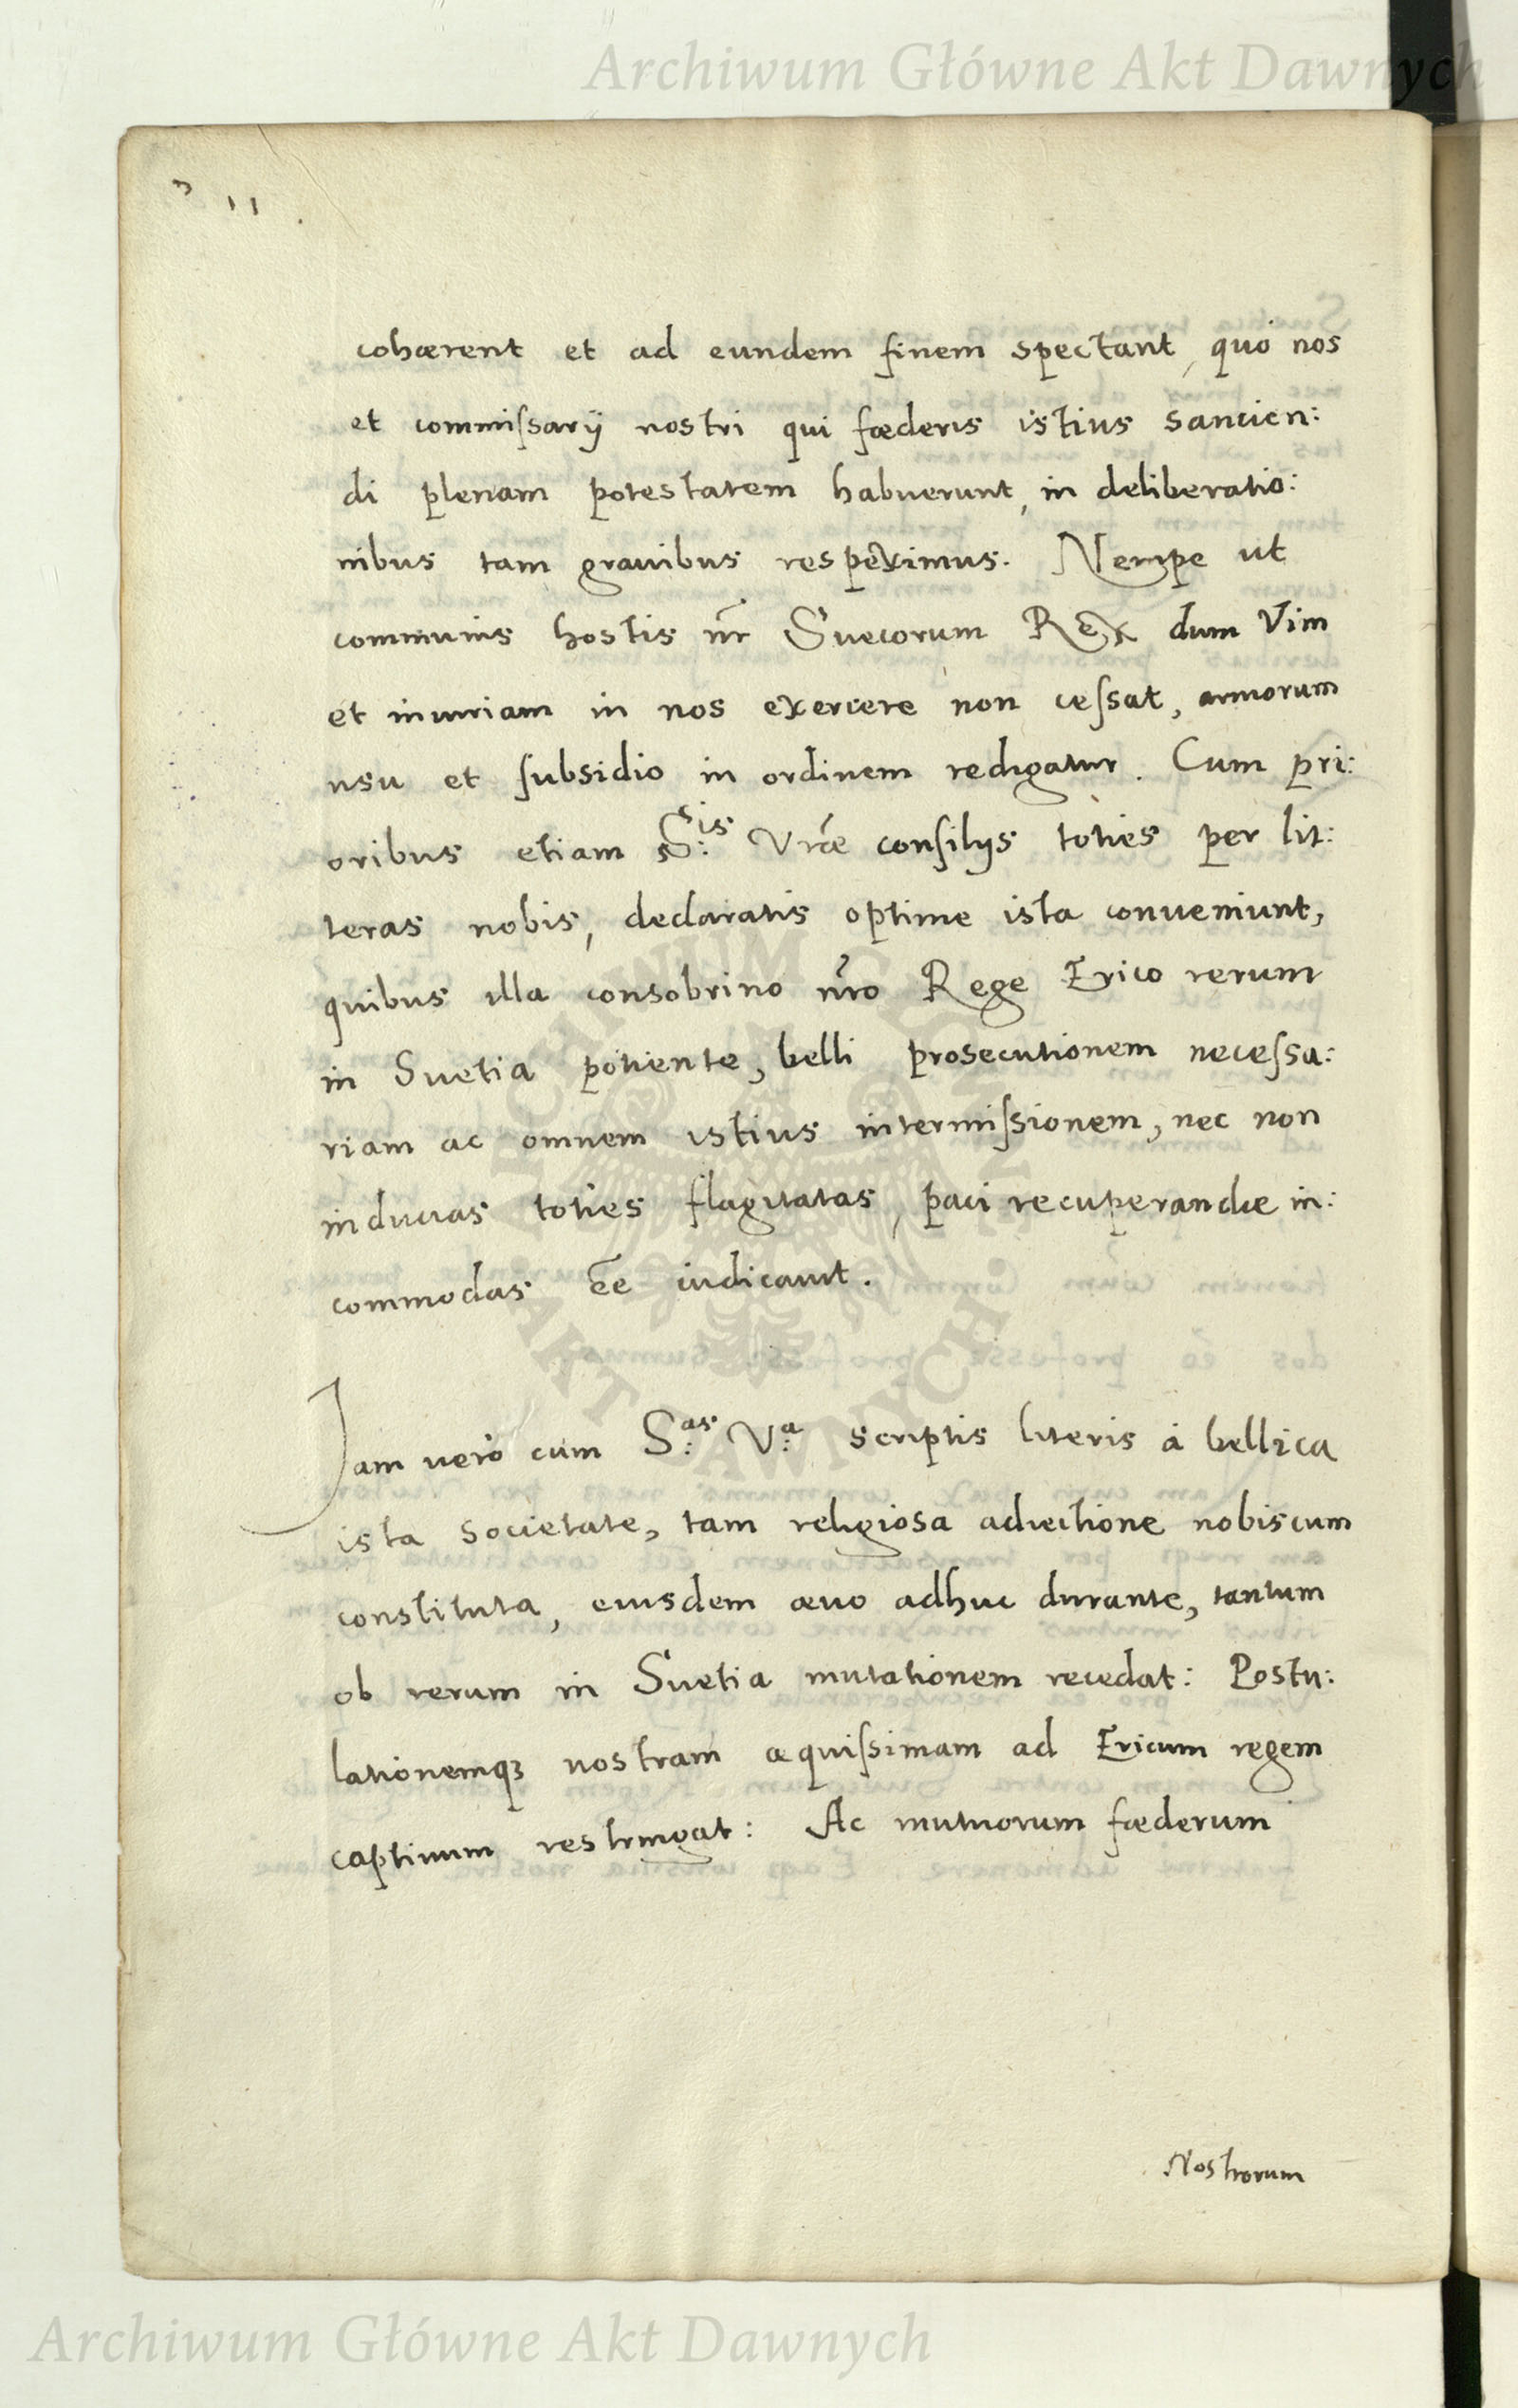 Archiwum Główne Akt Dawnych
cohærent et ad eundem finem spectant, quo nos
et commiſsarij nostri qui fœderis istius sancien:
di plenam potestatem habuerunt, in deliberatio:
nibus tam grauibus respeximus. Nempe ut
communis hostis nr̃ Suecorum Rex dum Vim
et iniuriam in nos exercere non ceſsat, armorum
usu et ſubsidio in ordinem redigatur. Cum pri:
oribus etiam S:tis Vræ conſilijs toties per lit:
teras nobis, declaratis optime ista conueniunt,
quibus illa consobrino nr̃o Rege Erico rerum
in Suetia potiente, belli prosecutionem neceſsa:
riam ac omnem istius intermiſsionem, nec non
inducias toties flagitatas, paci recuperandæ in:
commodas ẽe iudicauit.
Jam uerò cum S:as V:a scriptis literis à bellica
ista societate, tam religiosa adiectione nobiscum
constituta, eiusdem æuo adhuc durante, tantum
ob rerum in Suetia mutationem recedat: Postu:
lationemqꝫ nostram æquiſsimam ad Ericum regem
captiuum restringat: Ac mutuorum fœderum
Nostrorum
ARCHIWUM GŁÓWNE AKT DAWNYCH
Archiwum Główne Akt Dawnych